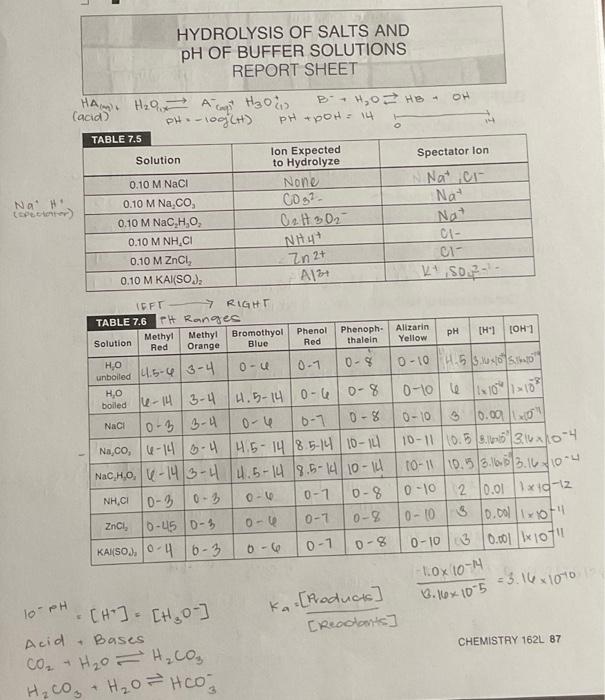 HYDROLYSIS OF SALTS AND
pH OF BUFFER SOLUTIONS
REPORT SHEET
HA(aq) + H₂O(l) ⇌ A⁻(aq) + H₃O⁺(l) B⁻ + H₂O ⇌ HB + OH
(acid) pH = -log(H) pH + pOH = 14 0 14
TABLE 7.5
Solution Ion Expected to Hydrolyze Spectator Ion
0.10 M NaCl None Na⁺, Cl⁻
Na⁺ H⁺ 0.10 M Na₂CO₃ CO₃²⁻ Na⁺
(spectator) 0.10 M NaC₂H₃O₂ C₂H3O₂⁻ Na⁺
0.10 M NH₄Cl NH4⁺ Cl-
0.10 M ZnCl₂ Zn2+ Cl⁻
0.10 M KAl(SO₄)₂ Al3+ K⁺, SO₄2-
LEFT → RIGHT
TABLE 7.6 PH Ranges
Solution Methyl Red Methyl Orange Bromothyol Blue Phenol Red Phenoph-thalein Alizarin Yellow pH [H⁺] [OH⁻]
H₂O unboiled 4.5-6 3-4 0-6 0-7 0-8 0-10 4.5
H₂O boiled 6-14 3-4 4.5-14 0-6 0-8 0-10 6 1x10⁻⁸
NaCl 0-3 3-4 0-6 0-7 0-8 0-10 3 0.001 1x10⁻¹¹
Na₂CO₃ 6-14 3-4 4.5-14 8.5-14 10-14 10-11 10.5 3.16x10-4
NaC₂H₃O₂ 6-14 3-4 4.5-14 8.5-14 10-14 10-11 10.5 3.16x10-4
NH₄Cl 0-3 0-3 0-6 0-7 0-8 0-10 2 0.01 1x10-12
ZnCl₂ 0-45 0-3 0-6 0-7 0-8 0-10 3 0.001 1x10-11
KAl(SO₄)₂ 0-4 0-3 0-6 0-7 0-8 0-10 3 0.001 1x10-11
10⁻ᵖᴴ = [H⁺] = [H₃O⁻] Ka = [Products] / [Reactants] 1.0x10⁻¹⁴ / 3.16x10⁻⁵ = 3.16x10⁻¹⁰
Acid + Bases
CO₂ + H₂O ⇌ H₂CO₃
H₂CO₃ + H₂O ⇌ HCO₃⁻
CHEMISTRY 162L 87